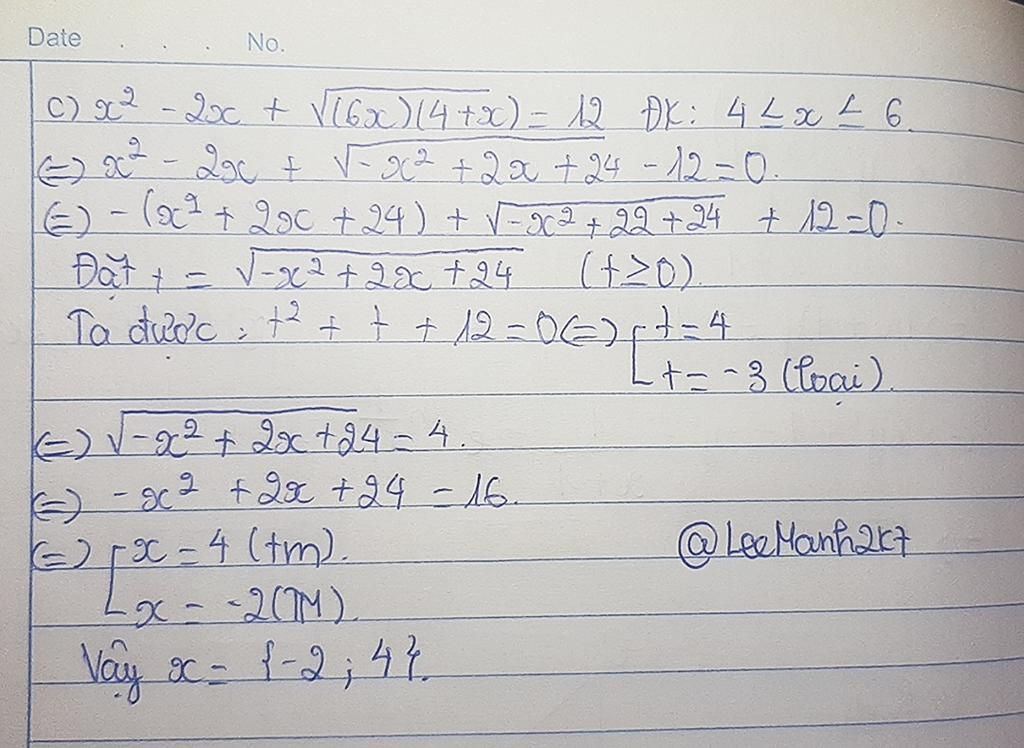 Date . . . No.
c) x² - 2x + √(6x)(4+x) = 12 ĐK: 4 ≤ x ≤ 6.
(=) x² - 2x + √-x² + 2x + 24 - 12 = 0.
(=) - (x² + 2x + 24) + √-x² + 22 + 24 + 12 = 0.
Đặt t = √-x² + 2x + 24 (t ≥ 0).
Ta được: t² + t + 12 = 0 (=) [ t = 4
t = -3 (loại).
(=) √-x² + 2x + 24 = 4.
(=) -x² + 2x + 24 = 16.
(=) [ x = 4 (tm).
x = -2 (TM).
@LeeManh2k7
Vậy x = {-2 ; 4}.